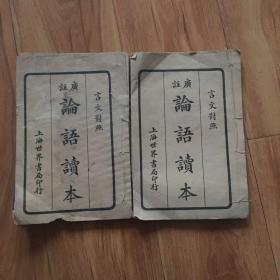 言文對照
廣註
論語讀本
上海世界書局印行
言文對照
廣註
論語讀本
上海世界書局印行